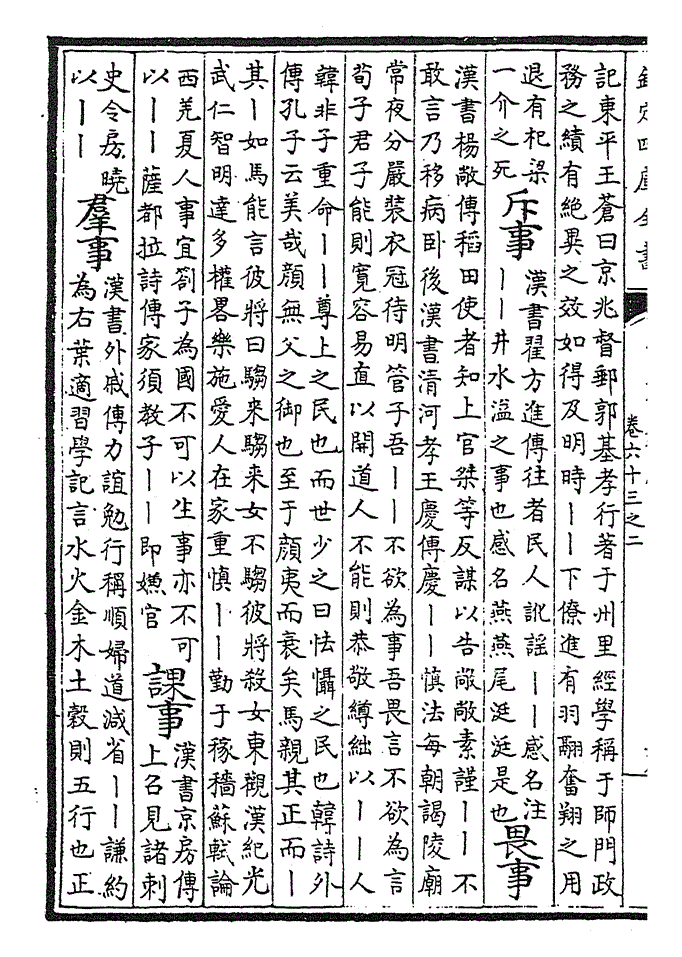 欽定四庫全書
卷六十三之二
記東平王蒼曰京兆督郵郭基孝行著于州里經學稱于師門政
務之績有絶異之效如得及明時丨丨下僚進有羽翮奮翔之用
退有杞梁
一介之死
斥事
漢書翟方進傳往者民人訛謡丨丨感名注
丨丨井水溢之事也感名燕燕尾涎涎是也
畏事
漢書楊敞傳稻田使者知上官桀等反謀以告敞敞素謹丨丨不
敢言乃移病卧後漢書清河孝王慶傳慶丨丨慎法每朝謁陵廟
常夜分嚴裝衣冠待明管子吾丨丨不欲為事吾畏言不欲為言
荀子君子能則寛容易直以開道人不能則恭敬繜絀以丨丨人
韓非子重命丨丨尊上之民也而世少之曰怯懾之民也韓詩外
傳孔子云美哉顔無父之御也至于顔夷而衰矣馬親其正而丨
其丨如馬能言彼將曰騶来騶来女不騶彼將殺女東觀漢紀光
武仁智明達多權畧樂施愛人在家重慎丨丨勤于稼穡蘇軾論
西羌夏人事宜劄子為國不可以生事亦不可
以丨丨薩都拉詩傳家須教子丨丨即嫌官
課事
漢書京房傳
上召見諸刺
史令房曉
以丨丨
羣事
漢書外戚傳力誼勉行稱順婦道減省丨丨謙約
為右葉適習學記言水火金木土穀則五行也正